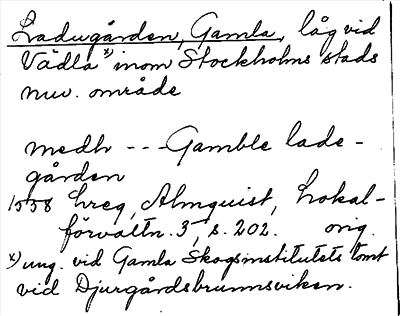 Ladugården, Gamla, låg vid
Vädla x) inom Stockholms stads
nuv. område
medh --- Gamble lade-
gården
1558 hreg, Almquist, Lokal-
förvaltn. 3, s. 202. orig.
x) ung. vid Gamla Skogsinstitutets tomt
vid Djurgårdsbrunnsviken.